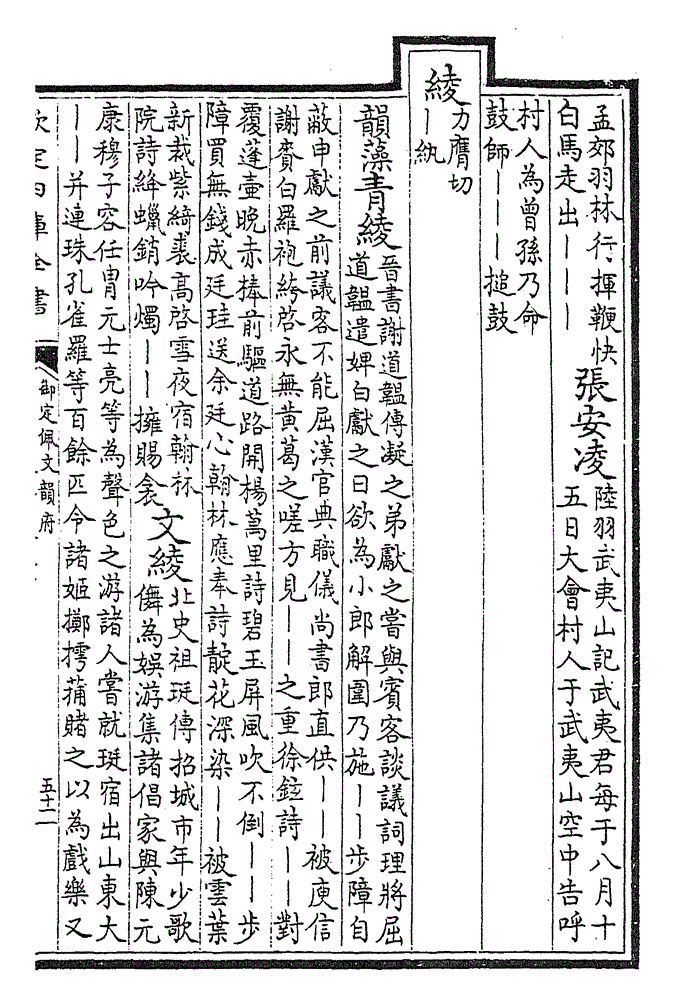 孟郊羽林行揮鞭快
白馬走出———
張安凌
陸羽武夷山記武夷君每于八月十
五日大會村人于武夷山空中告呼
村人為曾孫乃命
鼓師———搥鼓
綾
力膺切
—紈
韻藻青綾
晉書謝道韞傳凝之弟獻之嘗與賓客談議詞理將屈
道韞遣婢白獻之曰欲為小郎解圍乃施——步障自
蔽申獻之前議客不能屈漢官典職儀尚書郎直供——被庾信
謝賚白羅袍絝啓永無黃葛之嗟方見——之重徐鉉詩——對
覆蓬壺晚赤捧前驅道路開楊萬里詩碧玉屏風吹不倒——步
障買無錢成廷珪送余廷心翰林應奉詩靛花深染——被雲葉
新裁紫綺裘高啓雪夜宿翰林
院詩絳蠟銷吟燭——擁賜衾
文綾
北史祖珽傳招城市年少歌
儛為娛游集諸倡家與陳元
康穆子容任胄元士亮等為聲色之游諸人嘗就珽宿出山東大
——并連珠孔雀羅等百餘匹令諸姬擲摴蒱賭之以為戲樂又
欽定四庫全書
御定佩文韻府
五十二